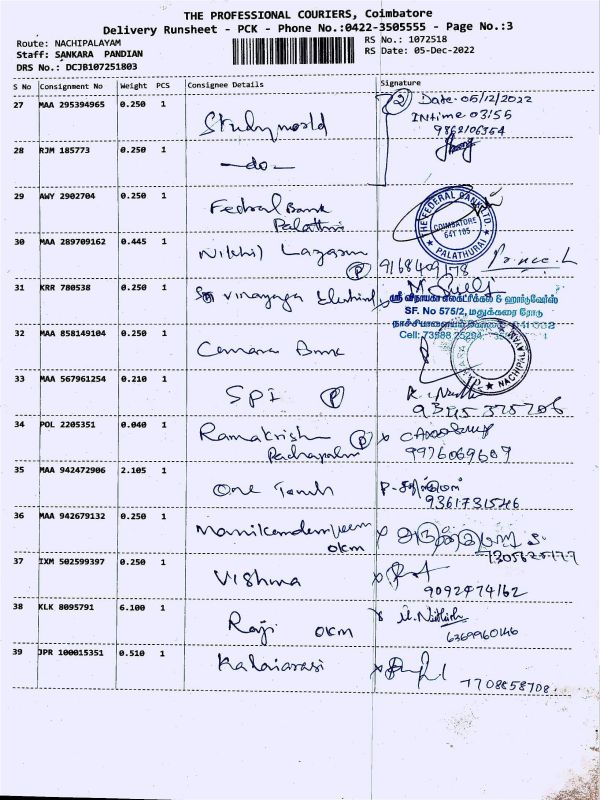 THE PROFESSIONAL COURIERS, Coimbatore
Delivery Runsheet - PCK - Phone No.:0422-3505555 - Page No.:3
Route: NACHIPALAYAM
RS No.: 1072518
Staff: SANKARA PANDIAN
RS Date: 05-Dec-2022
DRS No.: DCJB107251803
S No Consignment No Weight PCS Consignee Details Signature
27 MAA 295394965 0.250 1 Study world
2 Date-05/12/2022
INtime 03:55
9862106354
28 RJM 185773 0.250 1 -do-
29 AWY 2902704 0.250 1 Fedral Bank
Palathri
THE FEDERAL BANK LTD.
COIMBATORE
641 105
PALATHURAI
30 MAA 289709162 0.445 1 Nikhil
P 9168409178 Prince.L
31 KRR 780538 0.250 1 Sri vinayaga
ஸ்ரீ விநாயகா எலக்ட்ரிக்கல் & ஹார்டுவேர்ஸ்
SF. No 575/2, மதுக்கரை ரோடு
Cell: 73588 25294
32 MAA 858149104 0.250 1 Canara Bank
NACHIPALAYAM
33 MAA 567961254 0.210 1 SPI P
34 POL 2205351 0.040 1 Ramakrish P
9976069609
35 MAA 942472906 2.105 1 One Touch
36 MAA 942679132 0.250 1
OKM
37 IXM 502599397 0.250 1 Vishma
9092474162
38 KLK 8095791 6.100 1 Raji OKM
6369960146
39 JPR 100015351 0.510 1 Kalaiarasi
7708858708